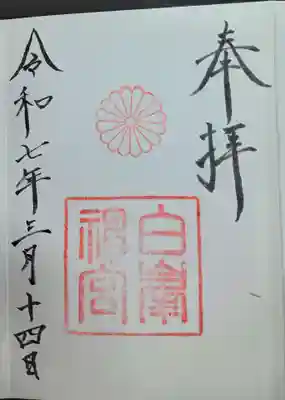 奉拝
白峯
神宮
令和七年三月十四日